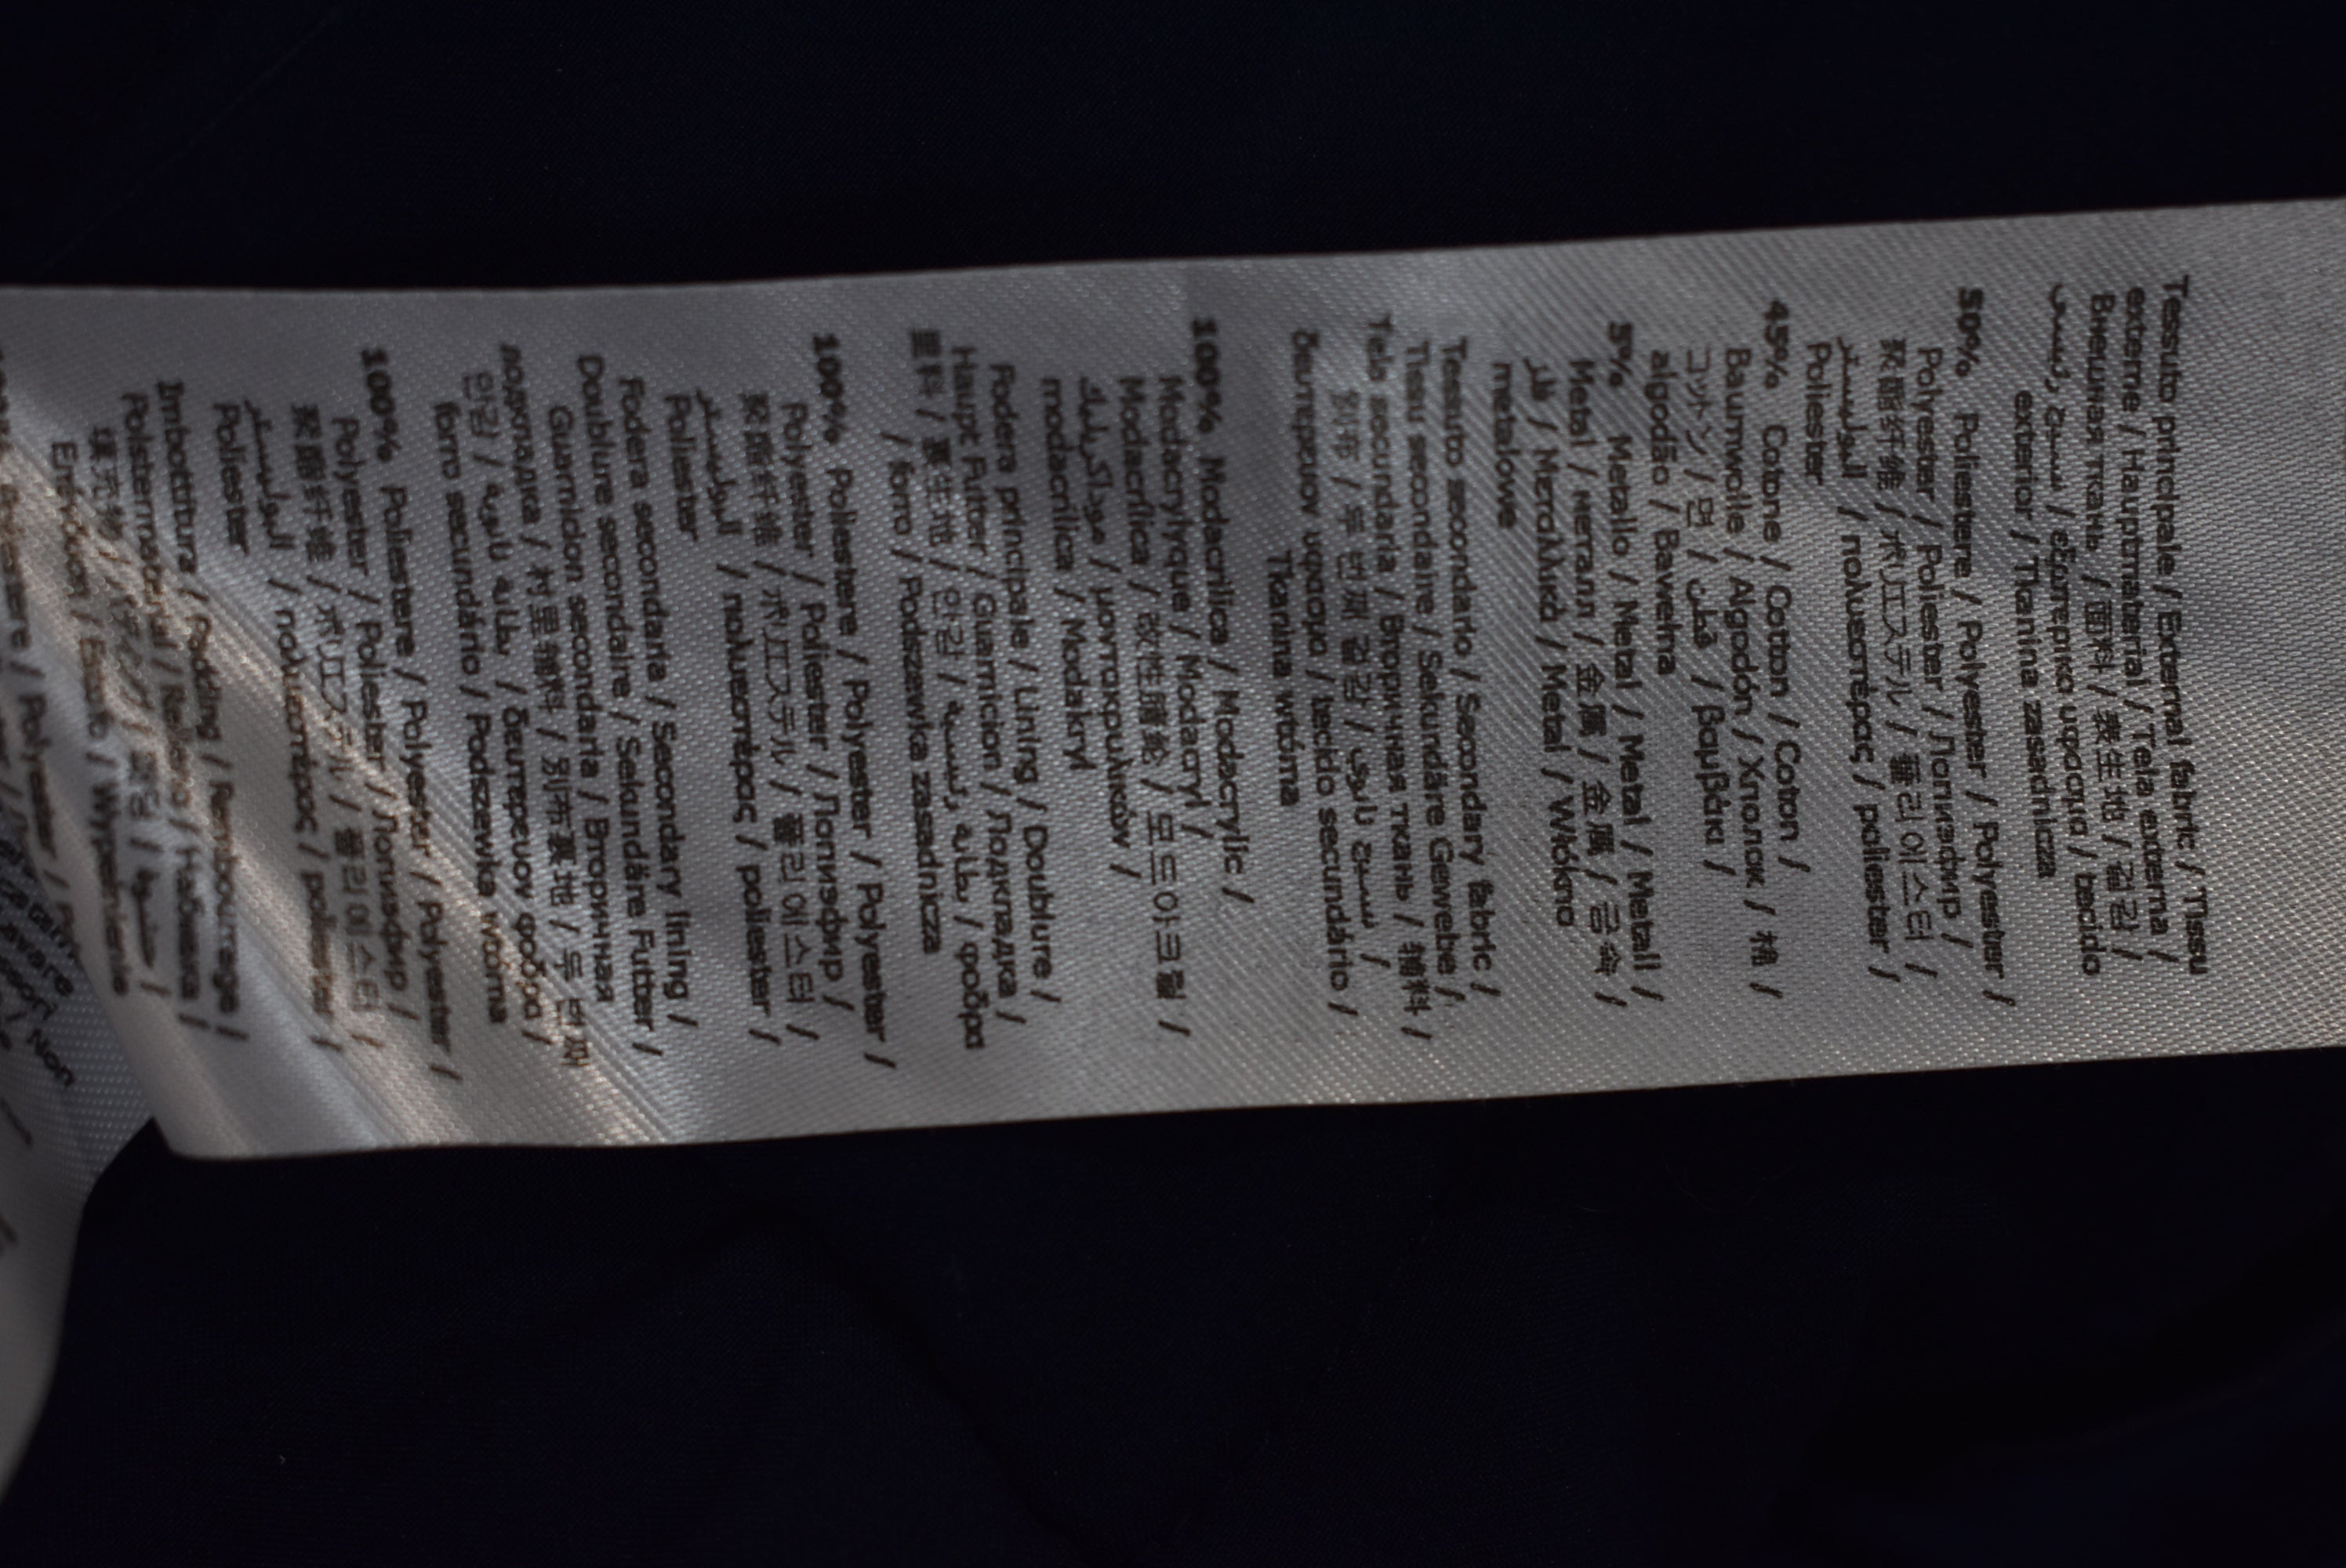 Tessuto principale / External fabric / Tissu
externe / Hauptmaterial / Tela externa /
Внешняя ткань / 面料 / 表生地 / 겉감 /
نسيج رئيسي / εξωτερικό υφασμα / tecido
exterior / Tkanina zasadnicza
50% Poliestere / Polyester / Polyester /
Polyester / Poliester / Полиэфир /
聚酯纤维 / ポリエステル / 폴리에스터 /
البوليستر / πολυεστέρας / poliester /
Poliester
45% Cotone / Cotton / Coton /
Baumwolle / Algodón / Хлопок / 棉 /
コットン / 면 / قطن / βαμβάκι /
algodão / Bawełna
5% Metallo / Metal / Metal / Metall /
Metal / металл / 金属 / 金属 / 금속 /
فلز / Μεταλλικά / Metal / Włókno
metalowe
Tessuto secondario / Secondary fabric /
Tissu secondaire / Sekundäre Gewebe /
Tela secundaria / Вторичная ткань / 辅料 /
別布 / 두 번째 겉감 / نسيج ثانوي /
δευτερεuον υφασμα / tecido secundário /
Tkanina wtórna
100% Modacrilica / Modacrylic /
Modacrylique / Modacryl /
Modacrílica / 改性腈纶 / 모드아크릴 /
موداكريليك / μοντακρυλικών /
modacrílica / Modakryl
Fodera principale / Lining / Doublure /
Haupt Futter / Guarnicion / Подкладка /
里料 / 裏生地 / 안감 / بطانة رئيسية / φοδρα
/ forro / Podszewka zasadnicza
100% Poliestere / Polyester / Polyester /
Polyester / Poliester / Полиэфир /
聚酯纤维 / ポリエステル / 폴리에스터 /
البوليستر / πολυεστέρας / poliester /
Poliester
Fodera secondaria / Secondary lining /
Doublure secondaire / Sekundäre Futter /
Guarnicion secondaria / Вторичная
подкладка / 衬里辅料 / 別布裏地 / 두 번째
안감 / بطانة ثانوية / δευτερεuον φοδρα /
forro secundário / Podszewka wtórna
100% Poliestere / Polyester / Polyester /
Polyester / Poliester / Полиэфир /
聚酯纤维 / ポリエステル / 폴리에스터 /
البوليستر / πολυεστέρας / poliester /
Poliester
Imbottitura / Padding / Rembourrage /
Polstermaterial / Relleno / Набивка /
填充物 / 中わた / 충전 / حشوة /
Enchido / Wypełnienie
/ Polyester /